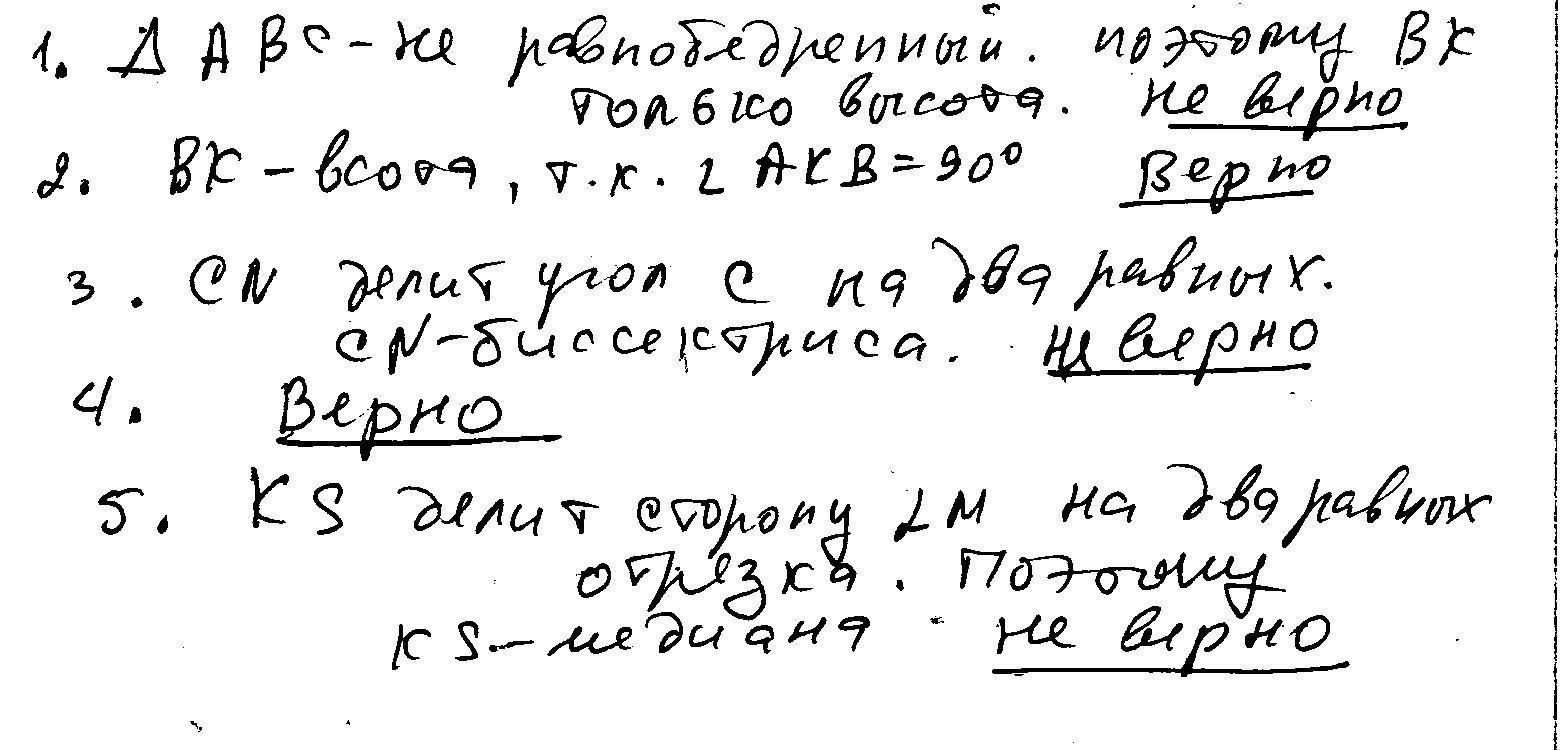 1. Δ ABC - не равнобедренный. поэтому BK
только высота. не верно
2. BK - всота, т.к. ∠ AKB = 90° Верно
3. CN делит угол C на два равных.
CN - биссектриса. не верно
4. Верно
5. KS делит сторону LM на два равных
отрезка. Поэтому
KS - медиана не верно